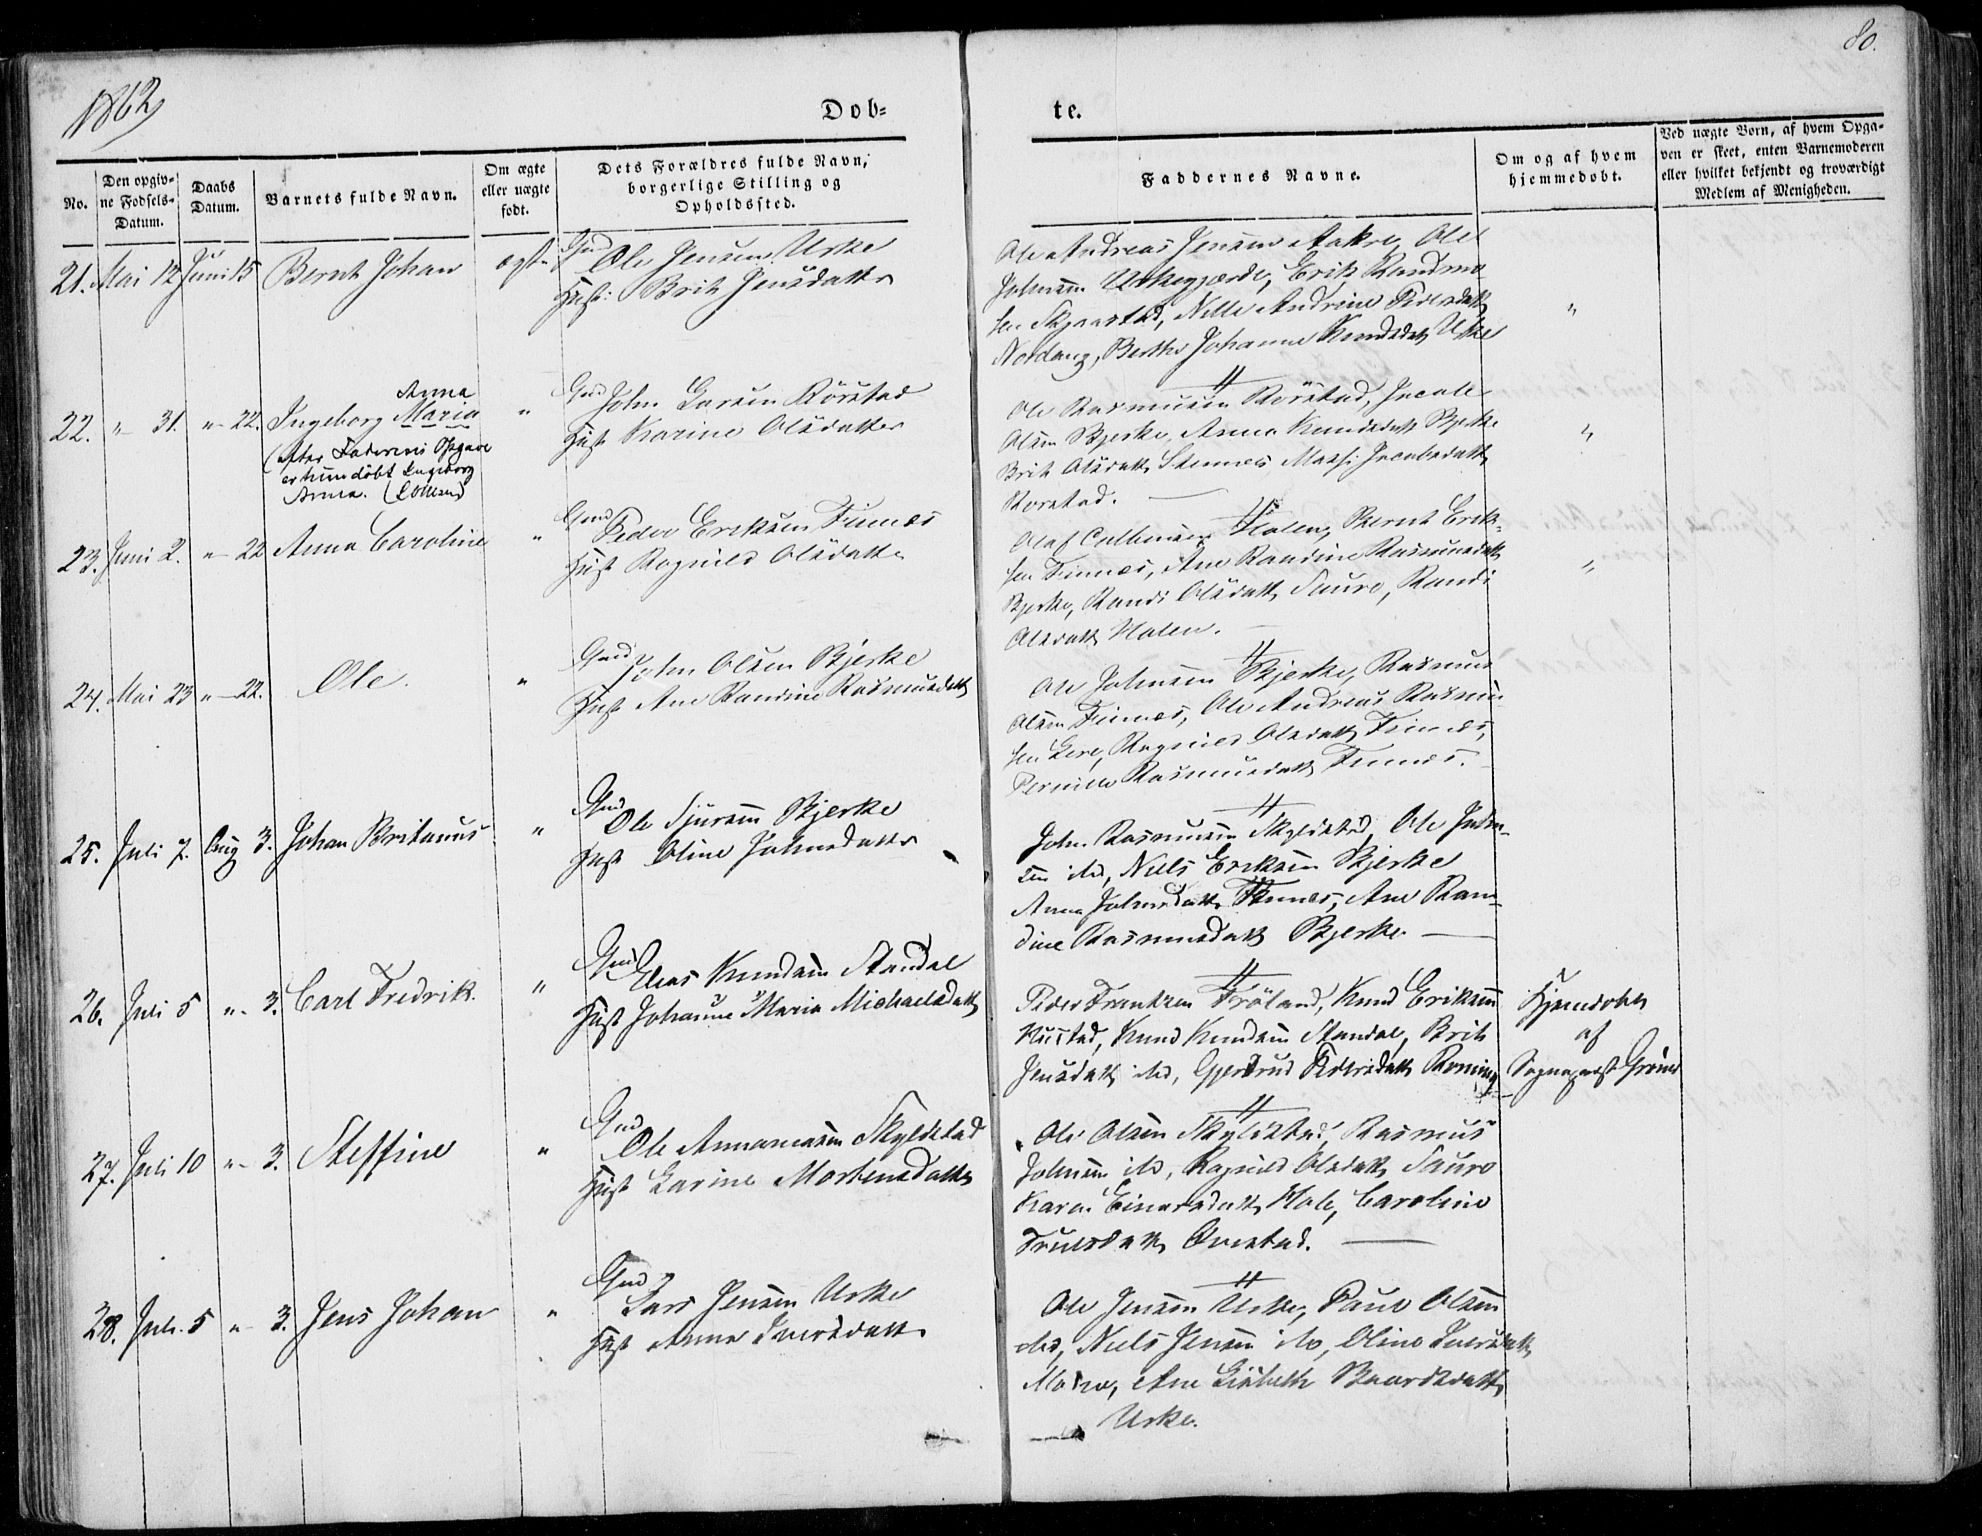 1862
80.
Døb-
te.
No.
Den opgiv-
ne Fødsels-
Datum.
Daabs
Datum.
Barnets fulde Navn.
Om ægte
eller uægte
født.
Dets Forældres fulde Navn,
borgerlige Stilling og
Opholdssted.
Faddernes Navne.
Om og af hvem
hjemmedøbt.
Ved uægte Børn, af hvem Opga-
ven er skeet, enten Barnemoderen
eller hvilket bekjendt og troværdigt
Medlem af Menigheden.
21. Mai 12 Juni 15 Bernt Johan ægte
Gmd Ole Jensen Urke
Hust: Brit Jensdatter
Ole Andreas Jensen Aakre, Ole
Johnsen Urkegjærde, Erik Randmo
sen Skjaastad, Nille Andrine Pedersdatt
Nordang, Berthe Johanne Knudsdatt Urke
"
22. " 31. " 22. Ingeborg Maria
Anna
(efter Faderens Opgave
er hun døbt Ingeborg
Anna.
"
Gmd John Larsen Rørstad
Hust Karine Olsdatter
Ole Rasmusen Rørstad, Jacob
Olsen Bjerke, Anna Knudsdatt Bjerke
Brit Olsdatt Stennes Mathi Jacobsdatt
Rorstad.
"
23. Juni 2. " 22 Anna Caroline "
Gmd Peder Eriksen Finnes
Hust Ragnild Olsdatter
Olaf Colbensen Holen, Bernt Erik-
sen Finnes, Ane Randine Rasmusdatt
Bjerke, Randi Olsdatt Saure, Randi
Olsdatt Holen.
"
24. Mai 23 " 22. Ole. "
Gmd John Olsen Bjerke
Hust Ane Randine Rasmusdatt
Ole Johnsen Bjerke, Rasmus
Olsen Finnes, Ole Andreas Rasmu
sen Lere, Ragnild Olsdatt Finnes,
Pernille Rasmusdatt Finnes.
25. Juli 7. Aug 3. Johan Britanus "
Gmd Ole Sjursen Bjerke
Hust Oline Johnsdatter
John Rasmusen Skyldstad, Ole John-
sen ibd, Niels Eriksen Bjerke
Anna Johnsdatt Finnes, Ane Ran-
dine Rasmusdatt Bjerke
26. Juli 5 " 3. Carl Fredrik. "
Gmd Elias Knudsen Standal
Hust Johanne Maria Michaelsdatt
Peder Frantzen Frøland, Knud Eriksen
Rustad, Knud Knudsen Standal, Brit
Jensdatt ibd, Gjertrud Pedersdatt
Hjemdøbt
af
Sognepræst Grøner
27. Juli 10 " 3. Steffine "
Gmd Ole Annanæsen Skyldstad
Hust Larine Mortensdatter
Ole Olsen Skyldstad, Rasmus
Johnsen ibd, Ragnild Olsdatt Saure
Karen Einarsdatt Hole, Caroline
Trulsdatt Øvrestad.
28. Juli 5 " 3. Jens Johan "
Gmd Lars Jensen Urke
Hust Anna Iversdatt
Ole Jensen Urke, Paul Olsen
ibd, Niels Jensen ibd, Oline Iversdatt
Moene, Ane Lisbeth Baardsdatt
Urke.